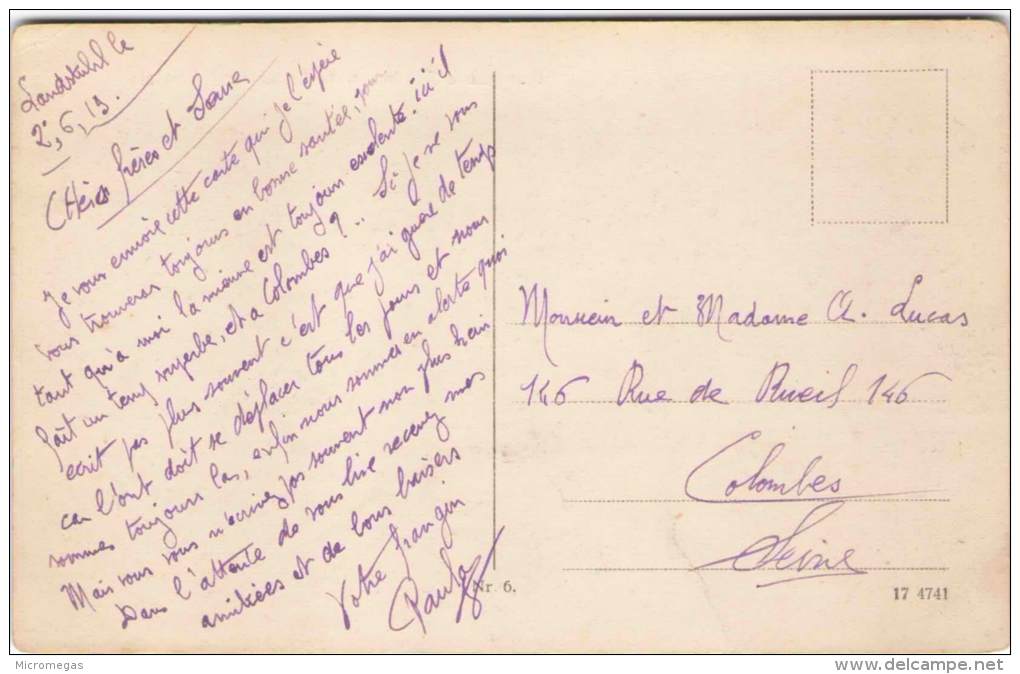 Landstuhl le
2, 6, 19.
CHères frères et Soeur
Je vous envoie cette carte qui je l'espère
vous trouveras toujours en bonne santée, pour
tant qu'à moi la mienne est toujours exelente. ici il
fait un temps superbe, et a Colombes ? .. Si je ne vous
ecrit pas plus souvent c'est que j'ai guere de temps
car l'ont doit se déplacer tous les jours et nous
sommes toujours las, enfin nous sommes en alerte quoi
Mais vous vous n'ecrivez pas souvent non plus hein
Dans l'attente de vous lire recevez mes
amitiées et de bons baisers
Votre frangin
Paul
Monsieur et Madame Ch. Lucas
146 Rue de Rueil 146
Colombes
Seine
Nr. 6.
17 4741
Micromegas
delcampe.net